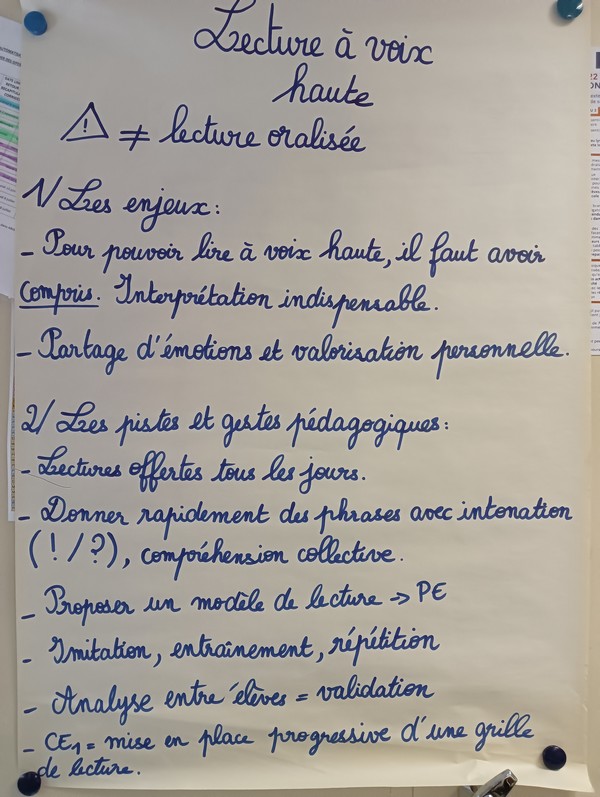 Lecture à voix
haute
⚠ ≠ lecture oralisée
1/ Les enjeux :
- Pour pouvoir lire à voix haute, il faut avoir
compris. Interprétation indispensable.
- Partage d'émotions et valorisation personnelle.
2/ Les pistes et gestes pédagogiques :
- Lectures offertes tous les jours.
- Donner rapidement des phrases avec intonation
(! / ?), compréhension collective.
- Proposer un modèle de lecture → PE
- Imitation, entraînement, répétition
- Analyse entre élèves = validation
- CE1 = mise en place progressive d'une grille
de lecture.